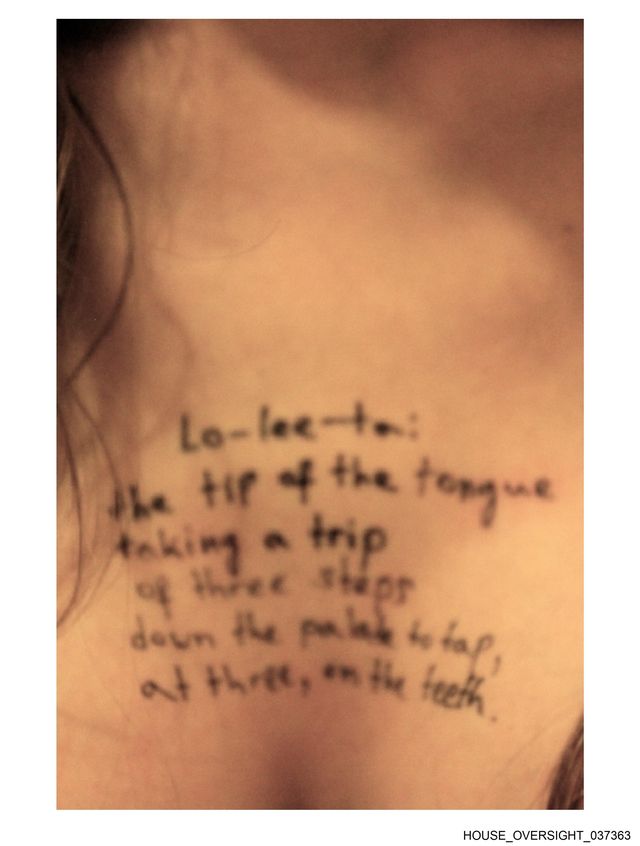 Lo-lee-ta:
the tip of the tongue
taking a trip
of three steps
down the palate to tap,
at three, on the teeth.
HOUSE_OVERSIGHT_037363